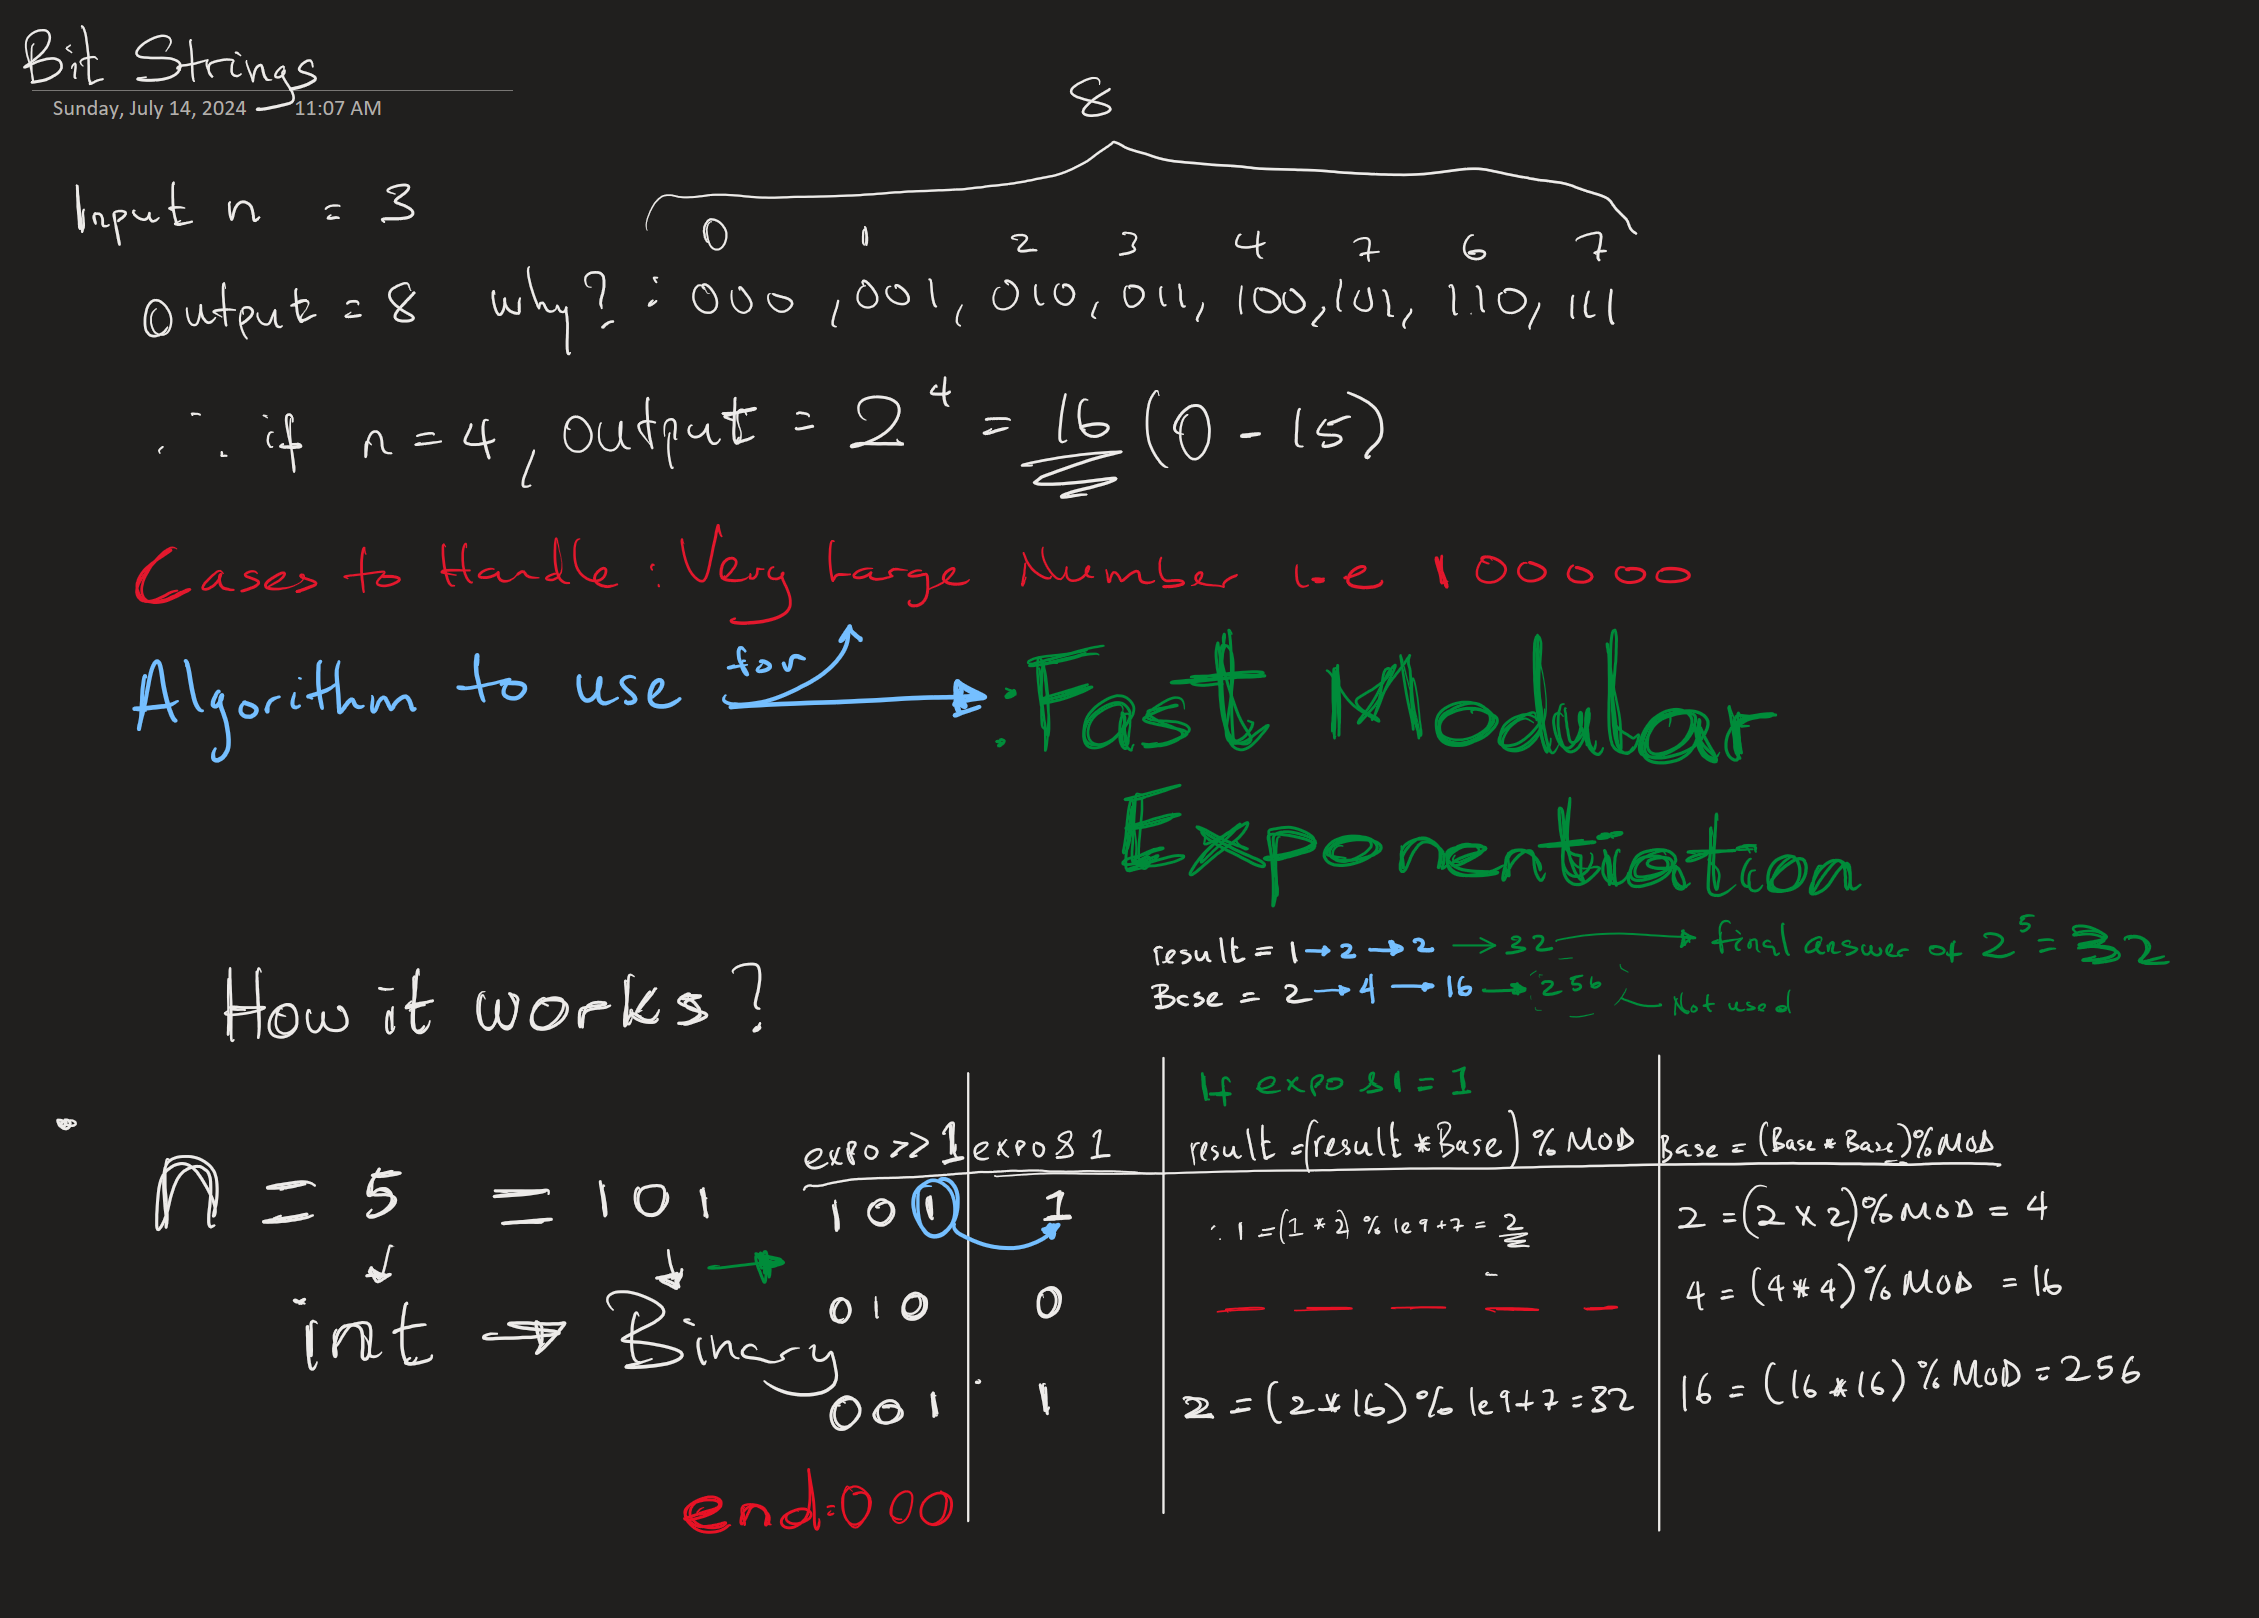 Bit Strings
Sunday, July 14, 2024 11:07 AM
8
Input n = 3
0 1 2 3 4 7 6 7
Output = 8 why? : 000, 001, 010, 011, 100, 101, 110, 111
∴ if n = 4, output = 2^4 = 16 (0 - 15)
Cases to Handle : Very Large Number i.e 100000
Algorithm to use for → : Fast Modular
Exponentiation
result = 1 → 2 → 2 → 32 → final answer of 2^5 = 32
Base = 2 → 4 → 16 → 256 Not used
How it works?
If expo & 1 = 1
expo >> 1 expo & 1 result = (result * Base) % MOD Base = (Base * Base) % MOD
n = 5 = 101 → 101 1 ∴ 1 = (1 * 2) % 1e9+7 = 2 2 = (2 x 2) % MOD = 4
int → Binary 010 0 — — — — — 4 = (4 * 4) % MOD = 16
001 1 2 = (2 * 16) % 1e9+7 = 32 16 = (16 * 16) % MOD = 256
end : 000